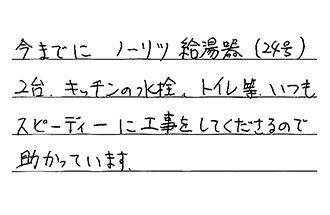 今までに ノーリツ給湯器(24号)
2台、キッチンの水栓、トイレ等、いつも
スピーディーに工事をしてくださるので
助かっています。